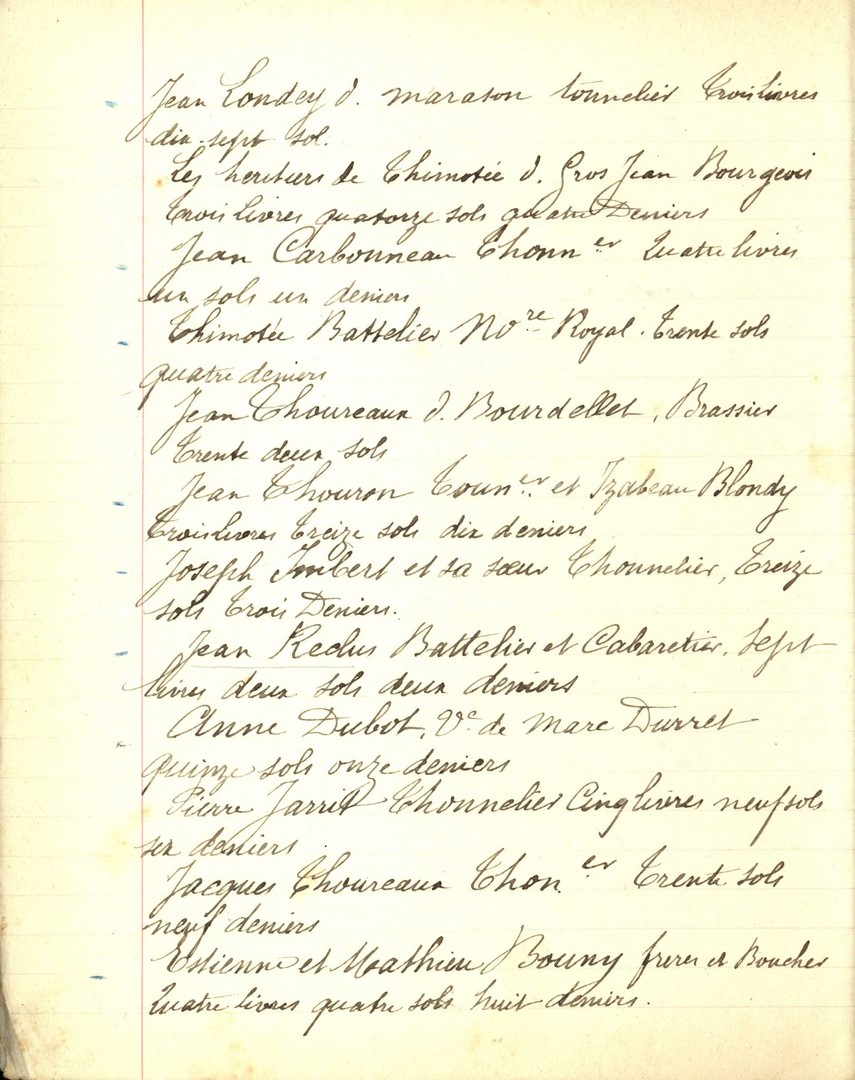 Jean Londey d. marason tonnelier Trois livres
dix-sept sol.
Les heritiers de Thimotée d. Gros Jean Bourgeois
Trois livres quatorze sols quatre Deniers
Jean Carbonneau Thonn er Quatre livres
un sols un deniers
Thimotée Battelier No re Royal. Trente sols
quatre deniers
Jean Thoureaux d. Bourdellet, Brassier
Trente deux sols
Jean Thouron Touner et Izabeau Blondy
Trois livres Treize sols dix deniers
Joseph Imbert et sa sœur Thonnelier, Treize
sols Trois Deniers.
Jean Reclus Battelier et Cabaretier. Sept
livres deux sols deux deniers
Anne Dubot, Ve de Marc Durret
quinze sols onze deniers
Pierre Jarrit Thonnelier Cinq livres neuf sols
six deniers
Jacques Thoureaux Thon er Trente sols
neuf deniers
Estienne et Mathieu Bouny freres et Boucher
Quatre livres quatre sols huit deniers.